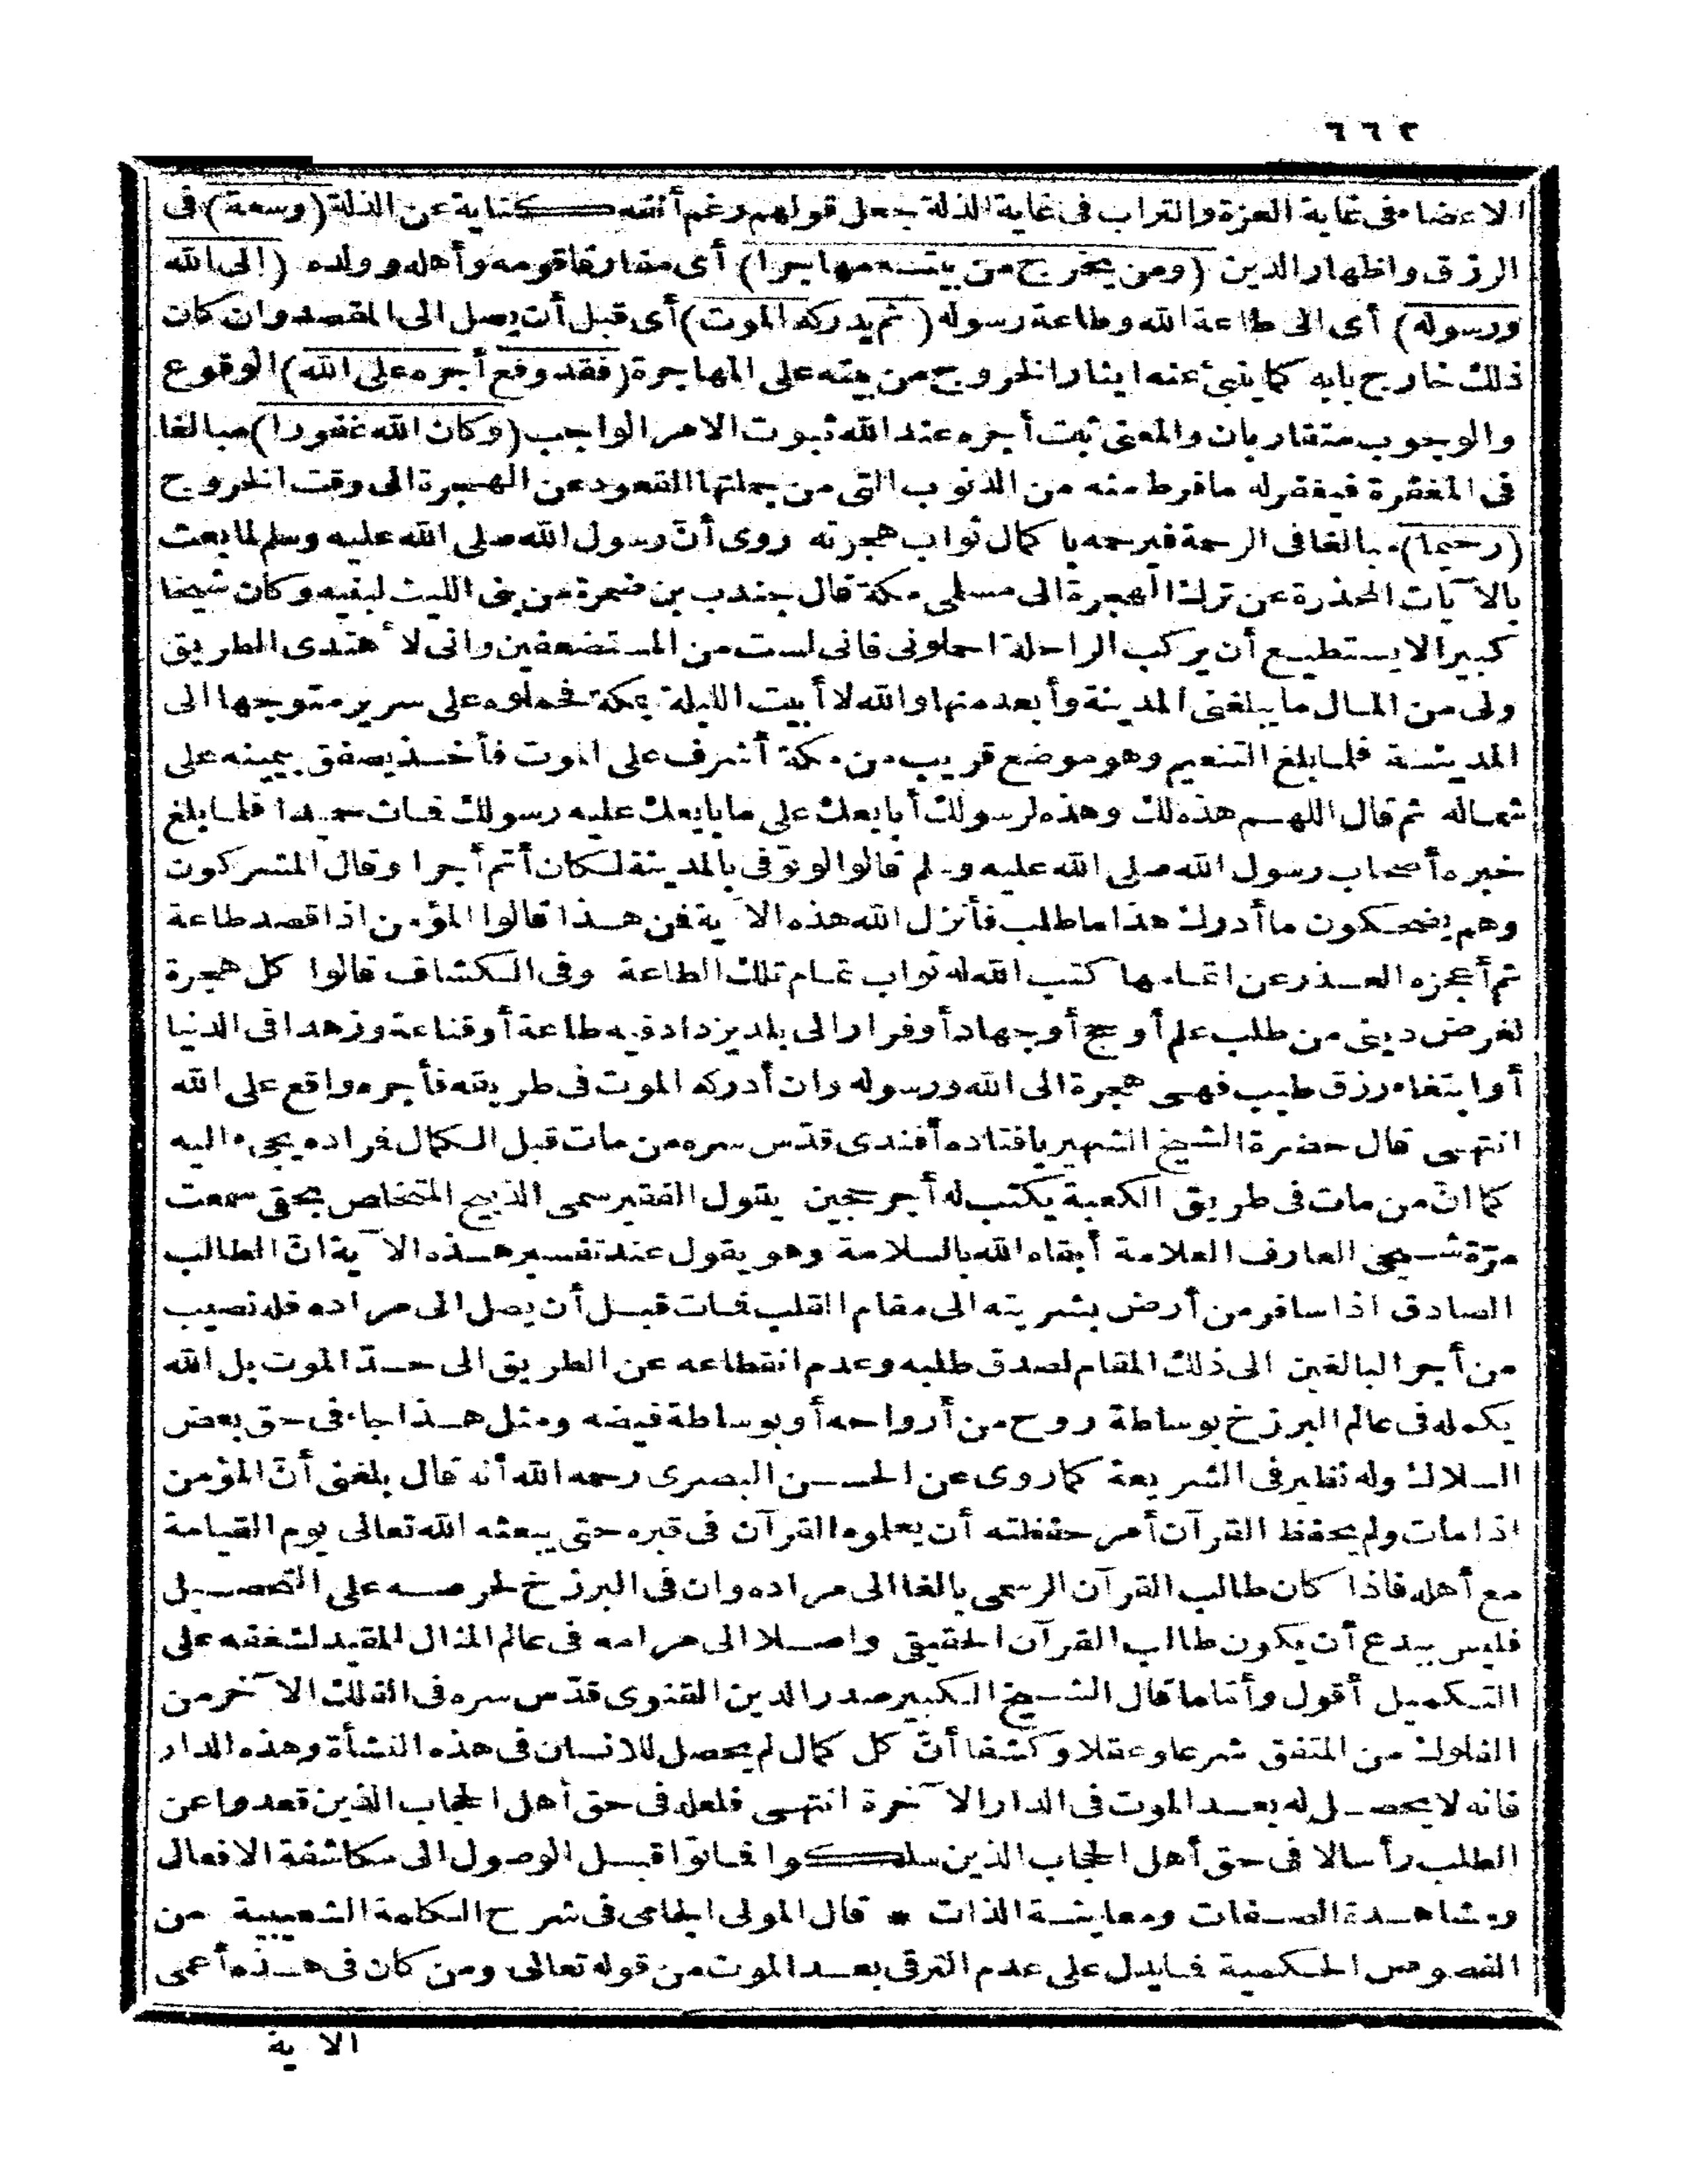 ٦٦٢
الاعضاء فى غاية العزة والتراب فى غاية الذلة جعل قولهم رغم أنفه كناية عن الذلة (وسعة) فى
الرزق واظهار الدين (ومن يخرج من بيته مهاجرا) أى مفارقا قومه وأهله وولده (الى الله
ورسوله) أى الى طاعة الله وطاعة رسوله (ثم يدركه الموت) أى قبل أن يصل الى المقصد وان كان
ذلك خارج بابه كما ينبئ عنه ايثار الخروج من بيته على المهاجرة (فقد وقع أجره على الله) الوقوع
والوجوب متقاربان والمعنى ثبت أجره عند الله ثبوت الامر الواجب (وكان الله غفورا) مبالغا
فى المغفرة فيغفر له ما فرط منه من الذنوب التى من جملتها القعود عن الهجرة الى وقت الخروج
(رحيما) مبالغا فى الرحمة فيرحمه با كمال ثواب هجرته روى أنّ رسول الله صلى الله عليه وسلم لما بعث
بالآيات المحذرة عن ترك الهجرة الى مسلمى مكة قال جندب بن ضمرة من بنى الليث لبنيه وكان شيخا
كبيرا لا يستطيع أن يركب الراحلة احملونى فانى لست من المستضعفين وانى لأهتدى الطريق
ولى من المال ما يبلغنى المدينة وأبعد منها والله لا أبيت الليلة بمكة فحملوه على سرير متوجها الى
المدينة فلما بلغ التنعيم وهو موضع قريب من مكة أشرف على الموت فأخذ يصفق بيمينه على
شماله ثم قال اللهم هذه لك وهذه لرسولك أبايعك على ما بايعك عليه رسولك فمات حميدا فلما بلغ
خبره أصحاب رسول الله صلى الله عليه وسلم قالوا لو توفى بالمدينة لكان أتم أجرا وقال المشركون
وهم يضحكون ما أدرك هذا ما طلب فأنزل الله هذه الآية فمن هذا قالوا المؤمن اذا قصد طاعة
ثم أعجزه العذر عن اتمامها كتب الله له ثواب تمام تلك الطاعة وفى الكشاف قالوا كل هجرة
لغرض دينى من طلب علم أو حج أو جهاد أو فرار الى بلد يزداد فيه طاعة أو قناعة وزهدا فى الدنيا
أو ابتغاء رزق طيب فهى هجرة الى الله ورسوله وان أدركه الموت فى طريقه فأجره واقع على الله
انتهى قال حضرة الشيخ الشهير بافتاده أفندى قدّس سره من مات قبل الكمال فمراده يجىء اليه
كما انّ من مات فى طريق الكعبة يكتب له أجر حجين يقول الفقير سمى الذبيح المتخلص بحقى سمعت
مرّة شيخى العارف العلامة أبقاه الله بالسلامة وهو يقول عند تفسير هذه الآية انّ الطالب
الصادق اذا سافر من أرض بشريته الى مقام القلب فمات قبل أن يصل الى مراده فله نصيب
من أجر البالغين الى ذلك المقام لصدق طلبه وعدم انقطاعه عن الطريق الى حدّ الموت بل الله
يكمله فى عالم البرزخ بوساطة روح من أرواحه أو بوساطة فيضه ومثل هذا جاء فى حق بعض
السلاك وله نظير فى الشريعة كما روى عن الحسن البصرى رحمه الله أنه قال بلغنى أنّ المؤمن
اذا مات ولم يحفظ القرآن أمر حفظته أن يعلموه القرآن فى قبره حتى يبعثه الله تعالى يوم القيامة
مع أهله فاذا كان طالب القرآن الرسمى بالغا الى مراده وان فى البرزخ لحرصه على التحصيل
فليس ببدع أن يكون طالب القرآن الحقيقى واصلا الى مرامه فى عالم المثال المقيد لشغفه على
التكميل أقول وأمّا ما قال الشيخ الكبير صدر الدين القنوى قدّس سره فى الفلك الآخر من
الفلوك من المتفق شرعا وعقلا وكشفا أنّ كل كمال لم يحصل للانسان فى هذه النشأة وهذه الدار
فانه لا يحصل له بعد الموت فى الدار الآخرة انتهى فلعله فى حق أهل الحجاب الذين قعدوا عن
الطلب رأسا لا فى حق أهل الحجاب الذين سلكوا فماتوا قبل الوصول الى مكاشفة الافعال
ومشاهدة الصفات ومعاينة الذات * قال المولى الجامى فى شرح الكلمة الشعيبية من
الفصوص الحكمية فما يدل على عدم الترقى بعد الموت من قوله تعالى ومن كان فى هذه أعمى
الآية